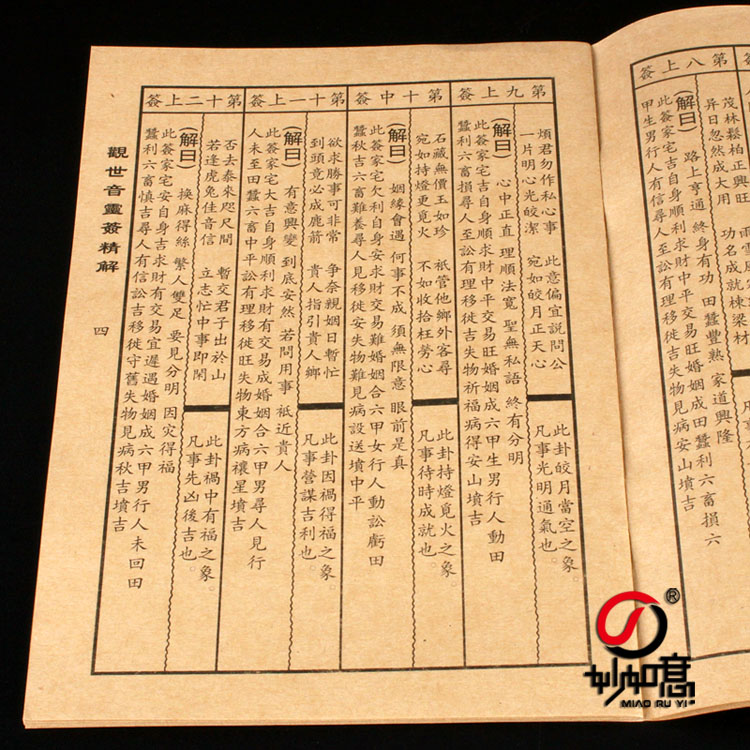 第八上簽
茂林鬆柏正興旺
异日忽然成大用　功名成就棟梁材
(解曰)
路上亨通　終身有功　田蠶豐熟　家道興隆
此簽家宅吉自身順利求財中平交易旺婚姻成田蠶利六畜損六
甲生男行人有信尋人至訟有理移徙吉失物祈福病安山墳吉
第九上簽
煩君勿作私心事　此意偏宜說問公
一片明心光皎潔　宛如皎月正天心
此卦皎月當空之象。
凡事光明通氣也。
(解曰)
心中正直　理順法寬　聖無私語　終有分明
此簽家宅吉自身順利求財中平交易旺婚姻成六甲生男行人動田
蠶利六畜損尋人至訟有理移徙吉失物祈福病得安山墳吉
第十中簽
石藏無價玉如珍　祇管他鄉外客尋
宛如持燈更覓火　不如收拾枉勞心
此卦持燈覓火之象。
凡事待時成就也。
(解曰)
姻緣會遇　何事不成　須無限意　眼前是真
此簽家宅欠利自身安求財交易難婚姻合六甲女行人動訟虧田
蠶秋吉六畜難養尋人見移徙安失物難見病設送墳中平
第十一上簽
欲求勝事可非常　爭奈親姻日暫忙
到頭竟必成鹿箭　貴人指引貴人鄉
此卦因禍得福之象。
凡事營謀吉利也。
(解曰)
有意興變　到底安然　若問用事　祇近貴人
此簽家宅大吉自身順利求財有交易成婚姻合六甲男尋人見行
人未至田蠶六畜中平訟有理移徙旺失物東方病禳星墳吉
第十二上簽
否去泰來咫尺間　暫交君子出於山
若逢虎兔佳音信　立志忙中事即閑
此卦禍中有福之象。
凡事先凶後吉也。
(解曰)
換麻得絲　繁人雙足　要見分明　因灾得福
此簽家宅安自身吉求財有交易宜遲遇婚姻成六甲男行人未回田
蠶利六畜慎吉尋人有信訟吉移徙守舊失物見病秋吉墳吉
觀世音靈簽精解
四
妙如意
®
MIAO RU YI